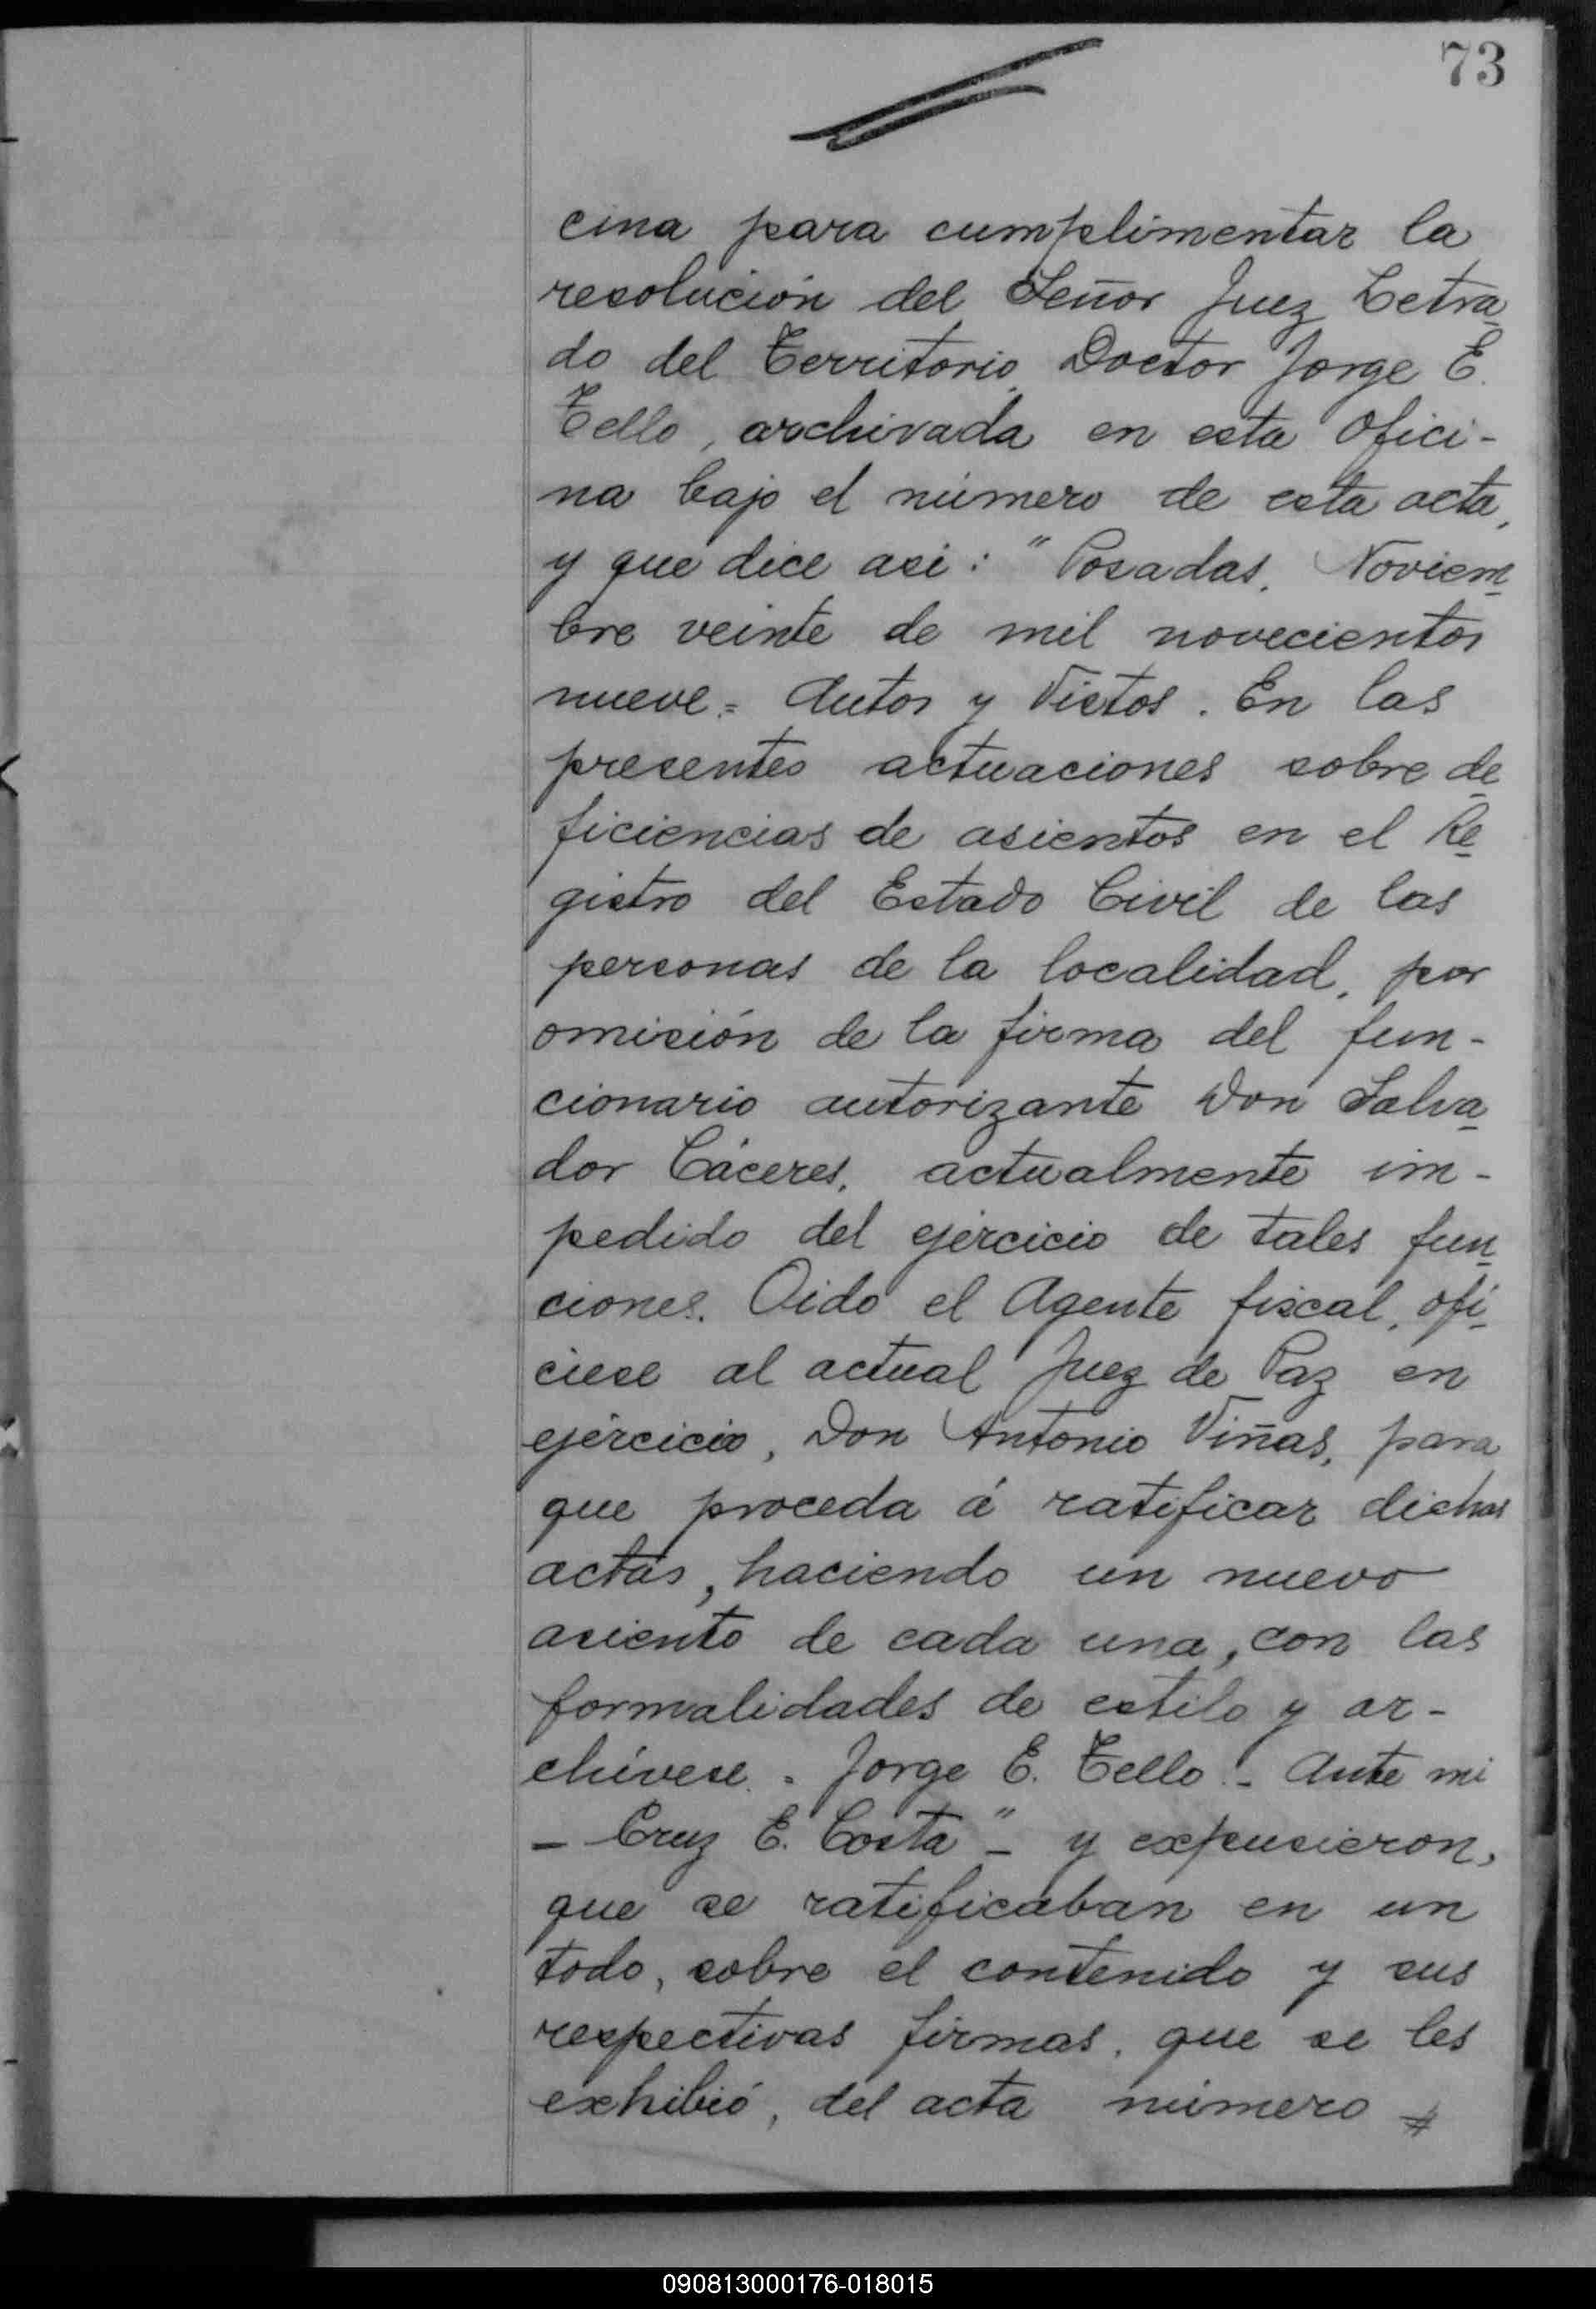 73
cina para cumplimentar la
resolución del Señor Juez Letra
do del Territorio Doctor Jorge E.
Tello, archivada en esta Ofici-
na bajo el número de esta acta,
y que dice asi: "Posadas, Noviem
bre veinte de mil novecientos
nueve = Autos y Vistos. En las
presentes actuaciones sobre de
ficiencias de asientos en el Re
gistro del Estado Civil de las
personas de la localidad, por
omisión de la firma del fun-
cionario autorizante Don Salva
dor Cáceres, actualmente im-
pedido del ejercicio de tales fun
ciones. Oido el Agente fiscal, ofí
ciese al actual Juez de Paz en
ejercicio, Don Antonio Viñas, para
que proceda á ratificar dichas
actas, haciendo un nuevo
asiento de cada una, con las
formalidades de estilo y ar-
chívese. = Jorge E. Tello. - Ante mi
- Cruz E. Costa" - y expusieron,
que se ratificaban en un
todo, sobre el contenido y sus
respectivas firmas, que se les
exhibió, del acta número #
090813000176-018015